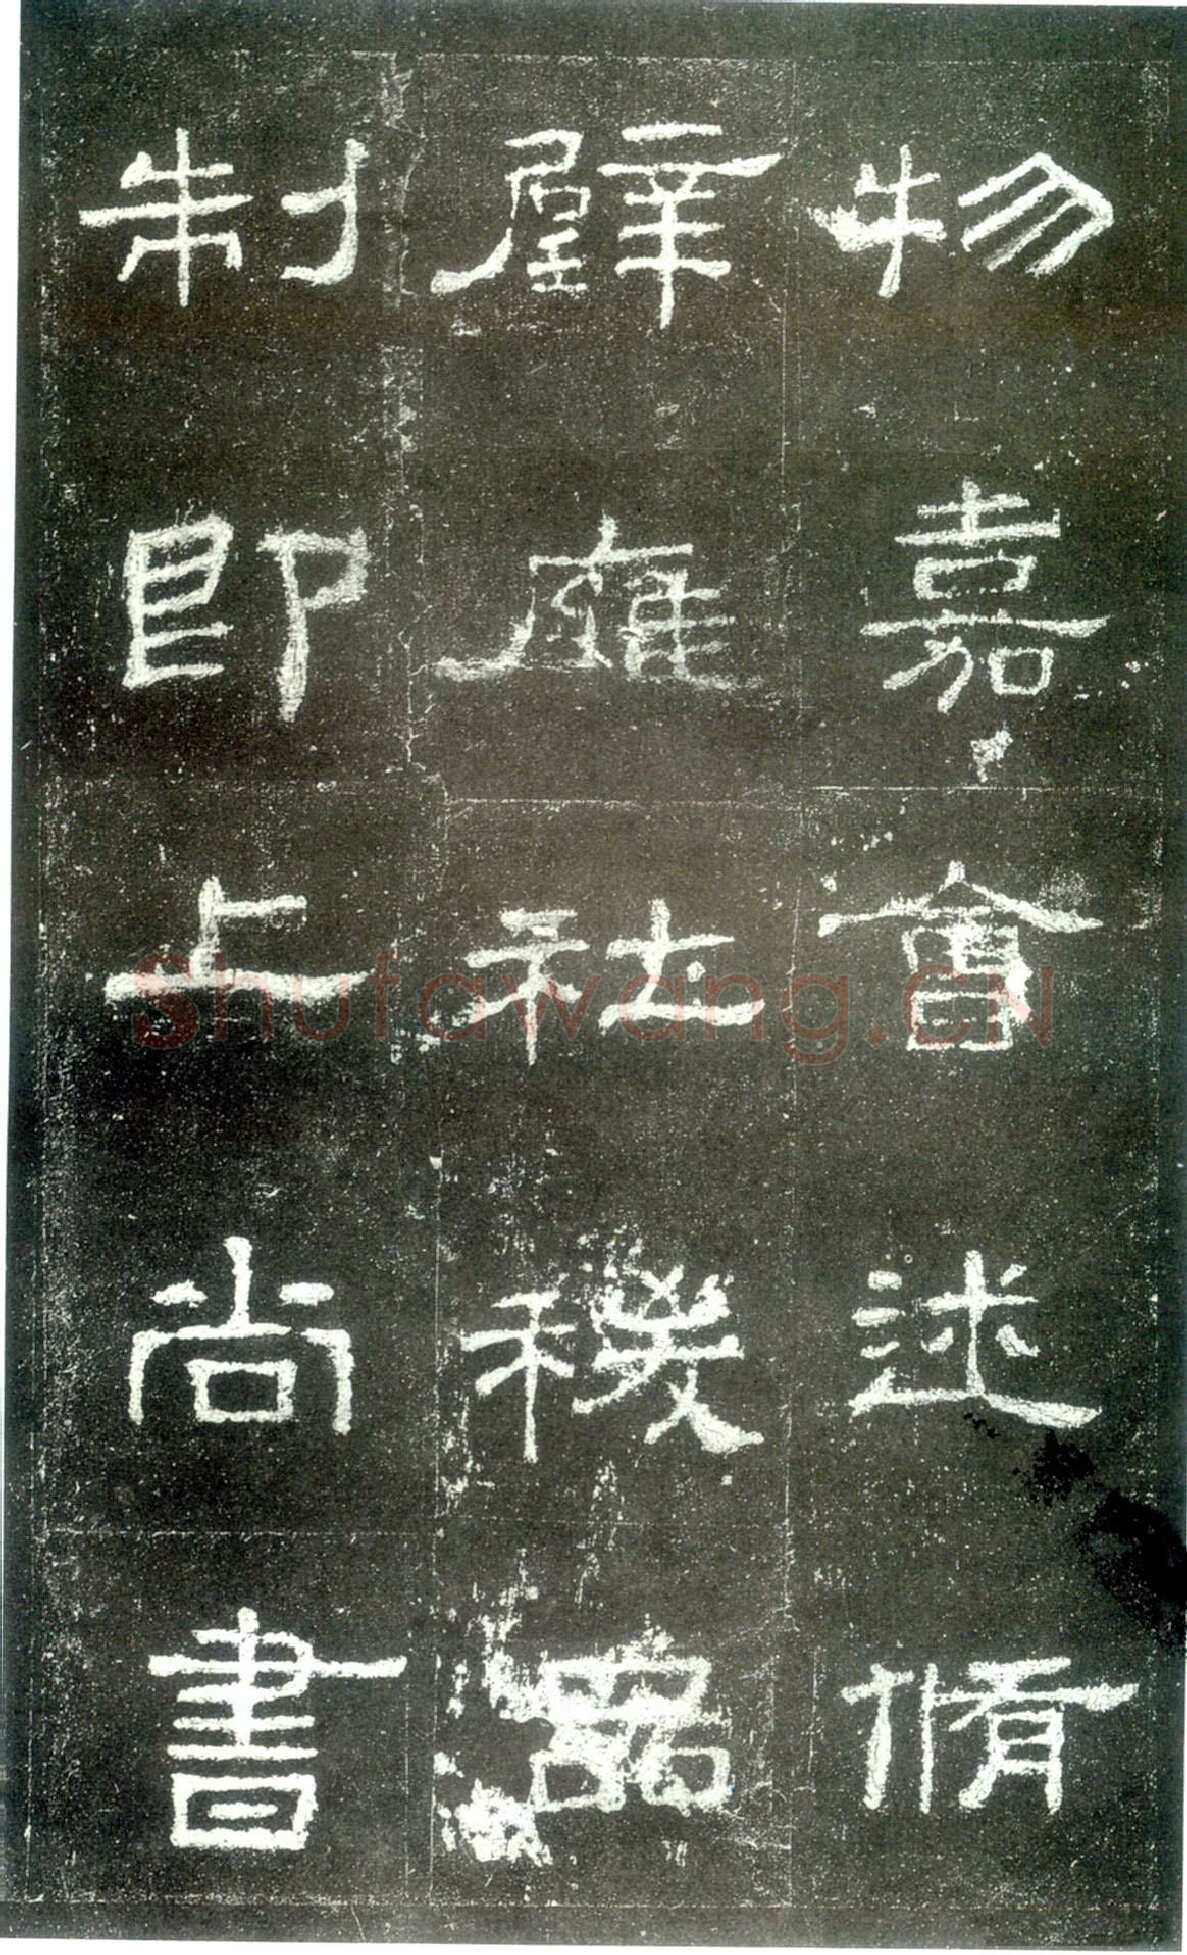 物嘉會述脩
璧雍社稷品
制即上尚書
Shufawang.CN